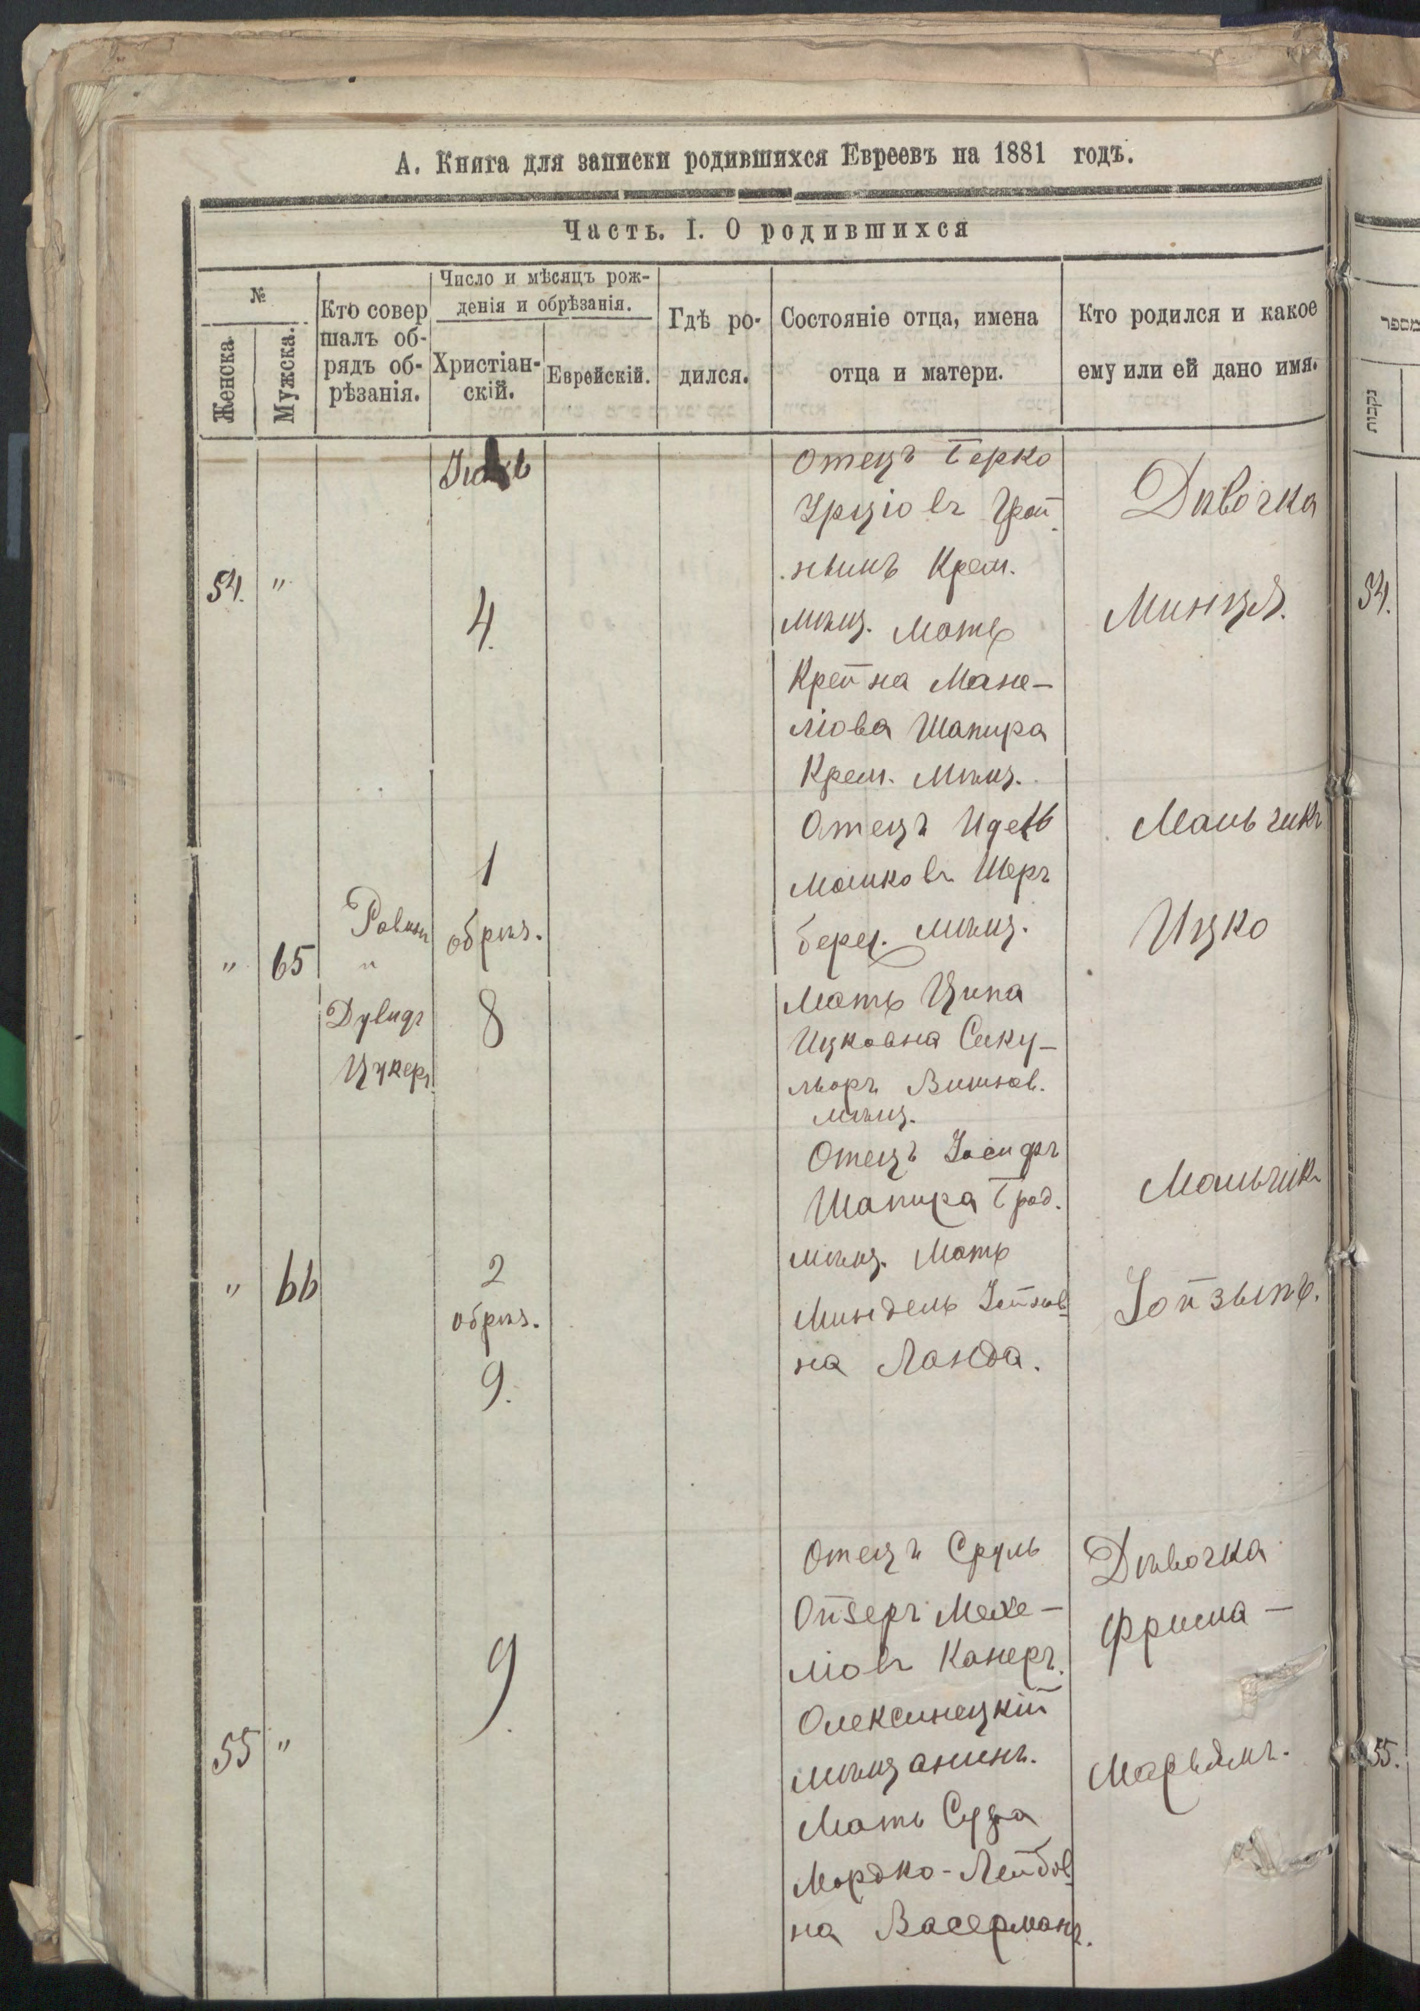 А. Книга для записки родившихся Евреевъ на 1881 годъ.
Часть. I. О родившихся
№
Женска.
Мужска.
Кто совер
шалъ об-
рядъ об-
рѣзанія.
Число и мѣсяцъ рож-
денія и обрѣзанія.
Христіан-
скій.
Еврейскій.
Гдѣ ро-
дился.
Состояніе отца, имена
отца и матери.
Кто родился и какое
ему или ей дано имя.
מספר
נקבות
54.
"
4.
Отецъ Берко
Крем.
мѣщ. Мать
Крейна Мане-
ліова Шапира
Крем. Мѣщ.
Дѣвочка
Минця.
54.
"
65
Равинъ
"
Дувидъ
Цукеръ.
1
обрѣз.
8
Отецъ Идель
Мошковъ Шеръ
берег. мѣщ.
Мать Ципа
Ицковна Секу-
льоръ Вишнов.
мѣщ.
Мальчикъ
Ицко
"
66
2
обрѣз.
9.
Отецъ Іосифъ
Шапира Брод.
мѣщ. Мать
Миндель
на Ланда.
Мальчикъ
55
"
9.
Отецъ Сруль
Ойзеръ Мехе-
ліовъ Канеръ.
Олексинецкій
мѣщанинъ.
Мать Сура
Мордко-Лейбов
на Васерманъ.
Дѣвочка
Фрима-
Марьямъ.
55.